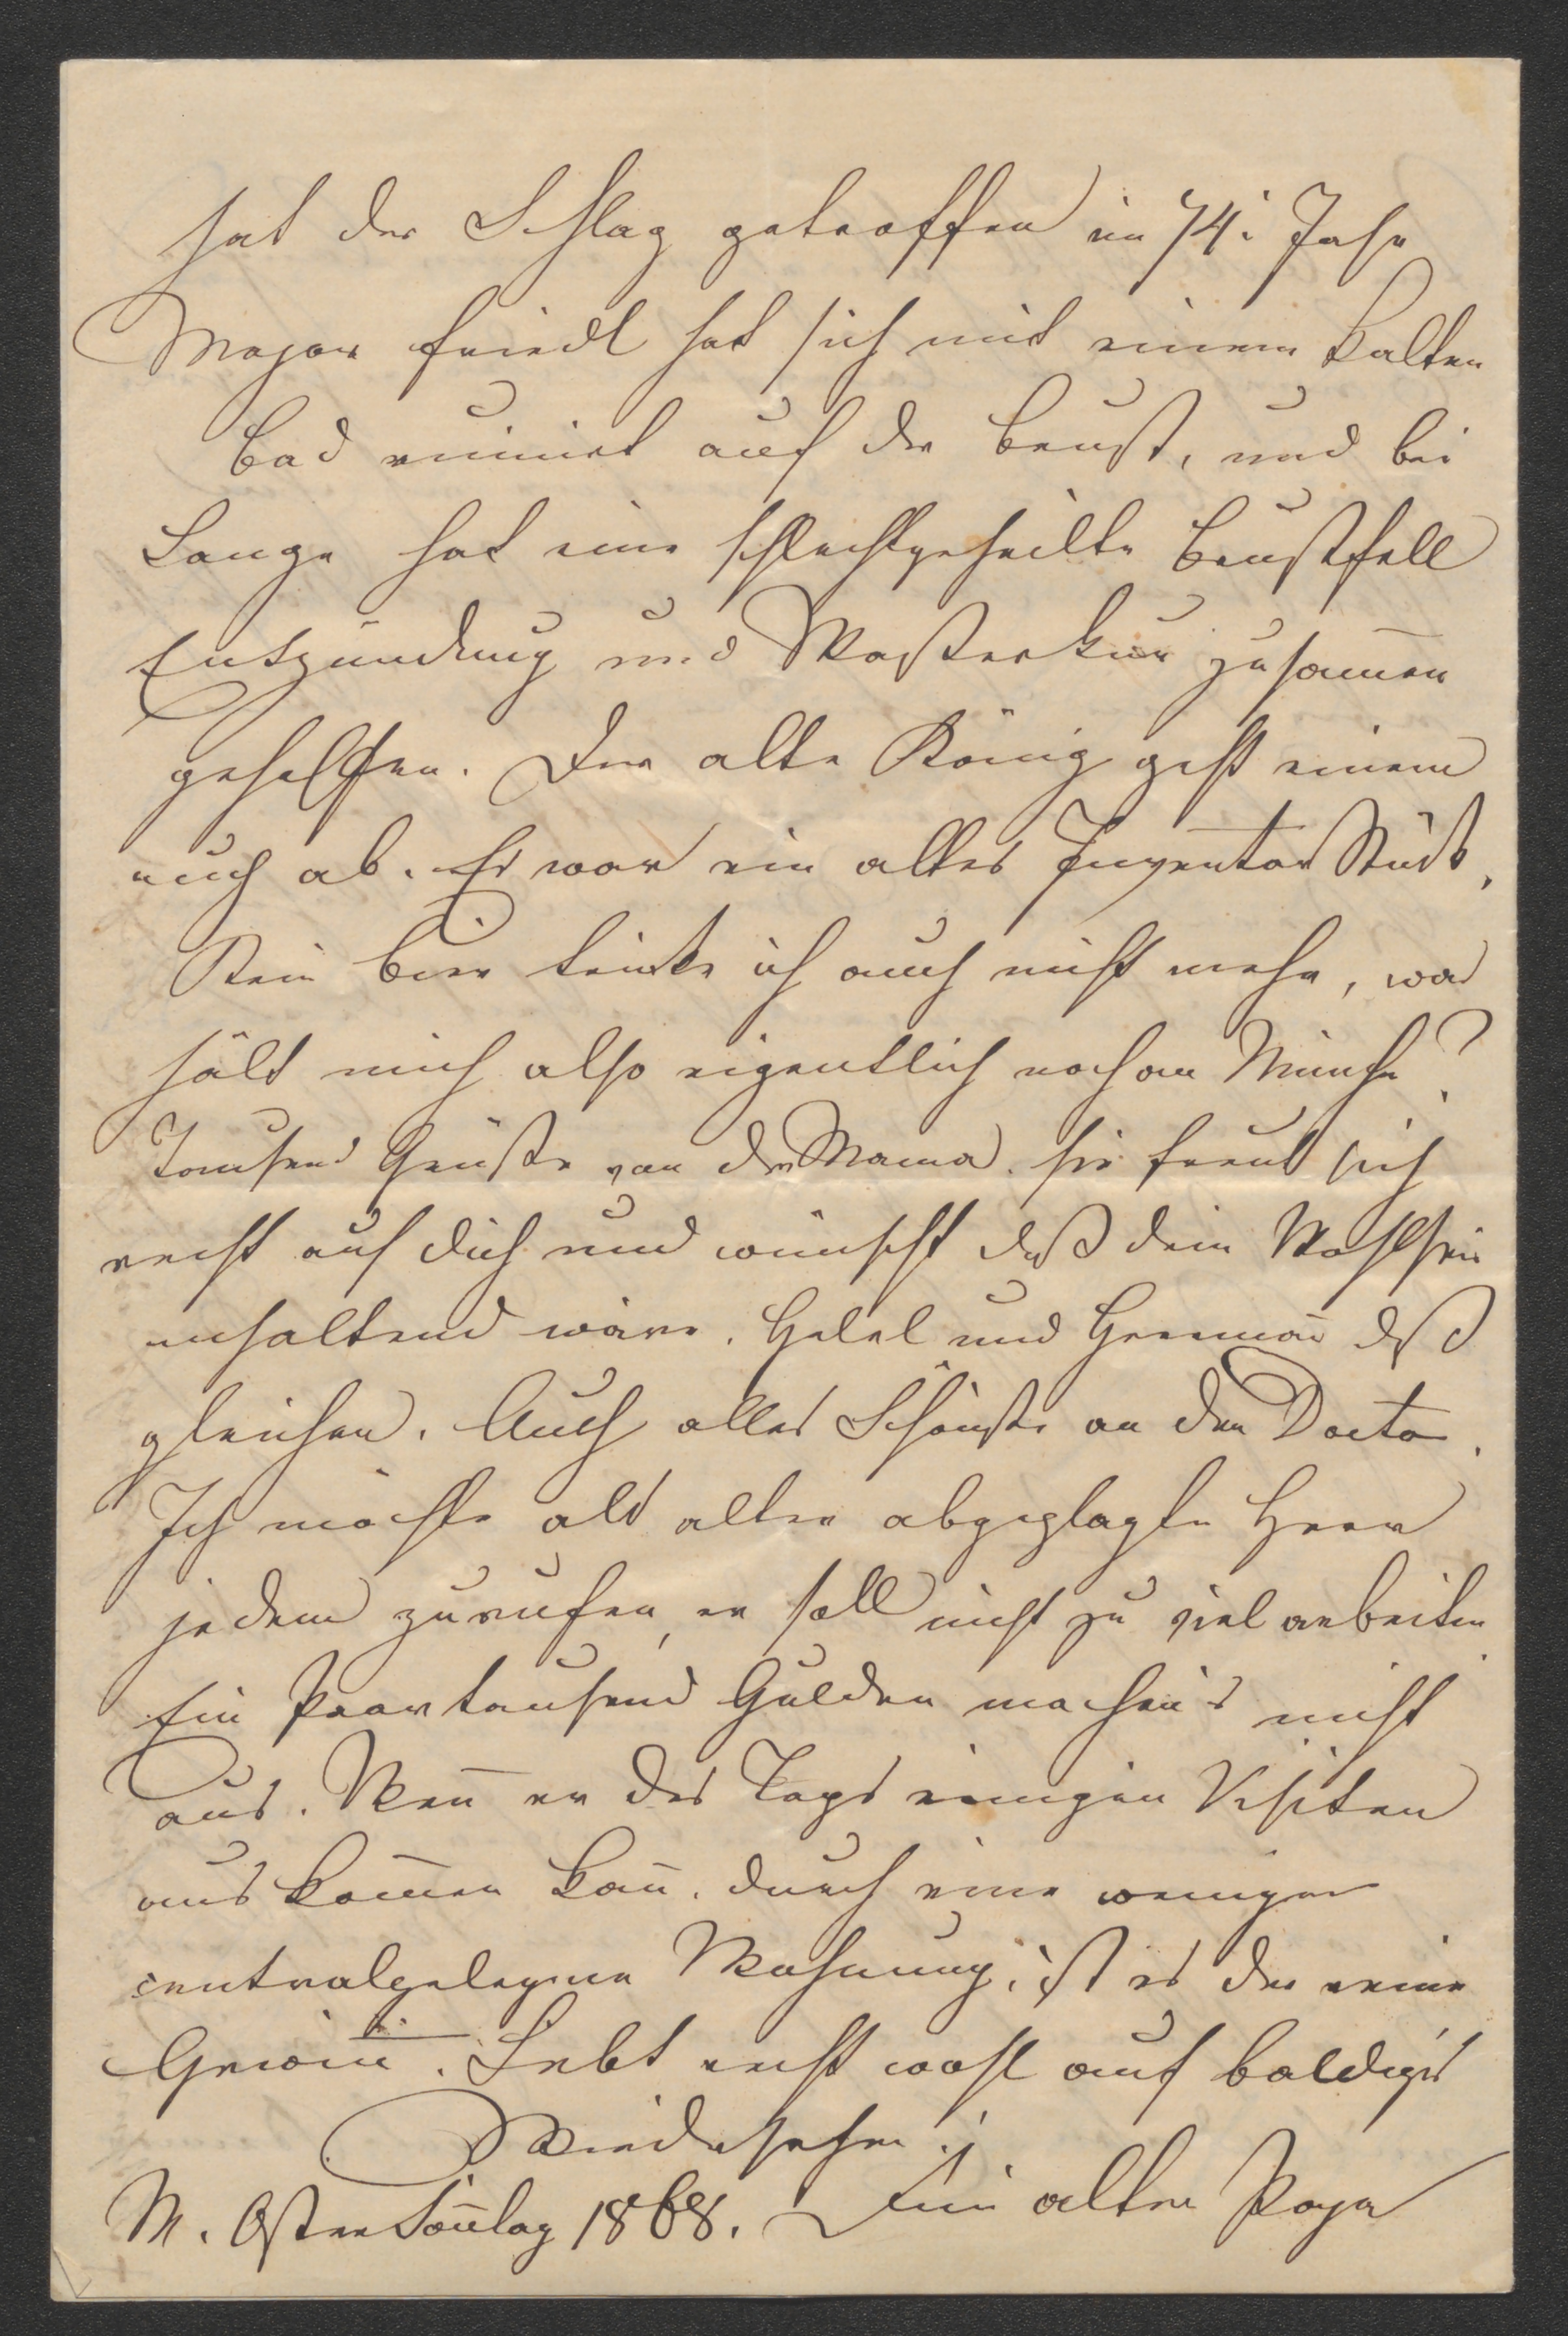 hat der Schlag getroffen im 74. Jahr
Major Friedl hat sich mit einem kalten
Bad ruinirt auf der Brust, und bei
Lange hat eine schlechtgeheilte Brustfell
Entzündung und Wasserkur zusam̅en
geholfen. Der alte König geht einem
auch ab. Er war ein altes Inventar Stück,
Kein Bier trinke ich auch nicht mehr, was
hält mich also eigentlich noch an München?
Tausend Grüße von der Mama. Sie freut sich
recht auf dich und wünscht daß dein Wohlsein
anhaltend wäre. Hedel und Herman̅ deß
gleichen. Auch alles Schönste an den Doctor.
Ich möchte als alter abgeplagter Herr
jedem zurufen, er soll nicht zu viel arbeiten.
Ein Paartausend Gulden machen's nicht
aus. Wen̅ er des Tags einigen Visiten
auskom̅en kan̅. durch eine weniger
centralgelegene Wohnung, ist es der reine
Gewin̅. Lebt recht wohl auf baldiges
Wiedersehen!
M. OsterSon̅tag 1868. Dein alter Papa